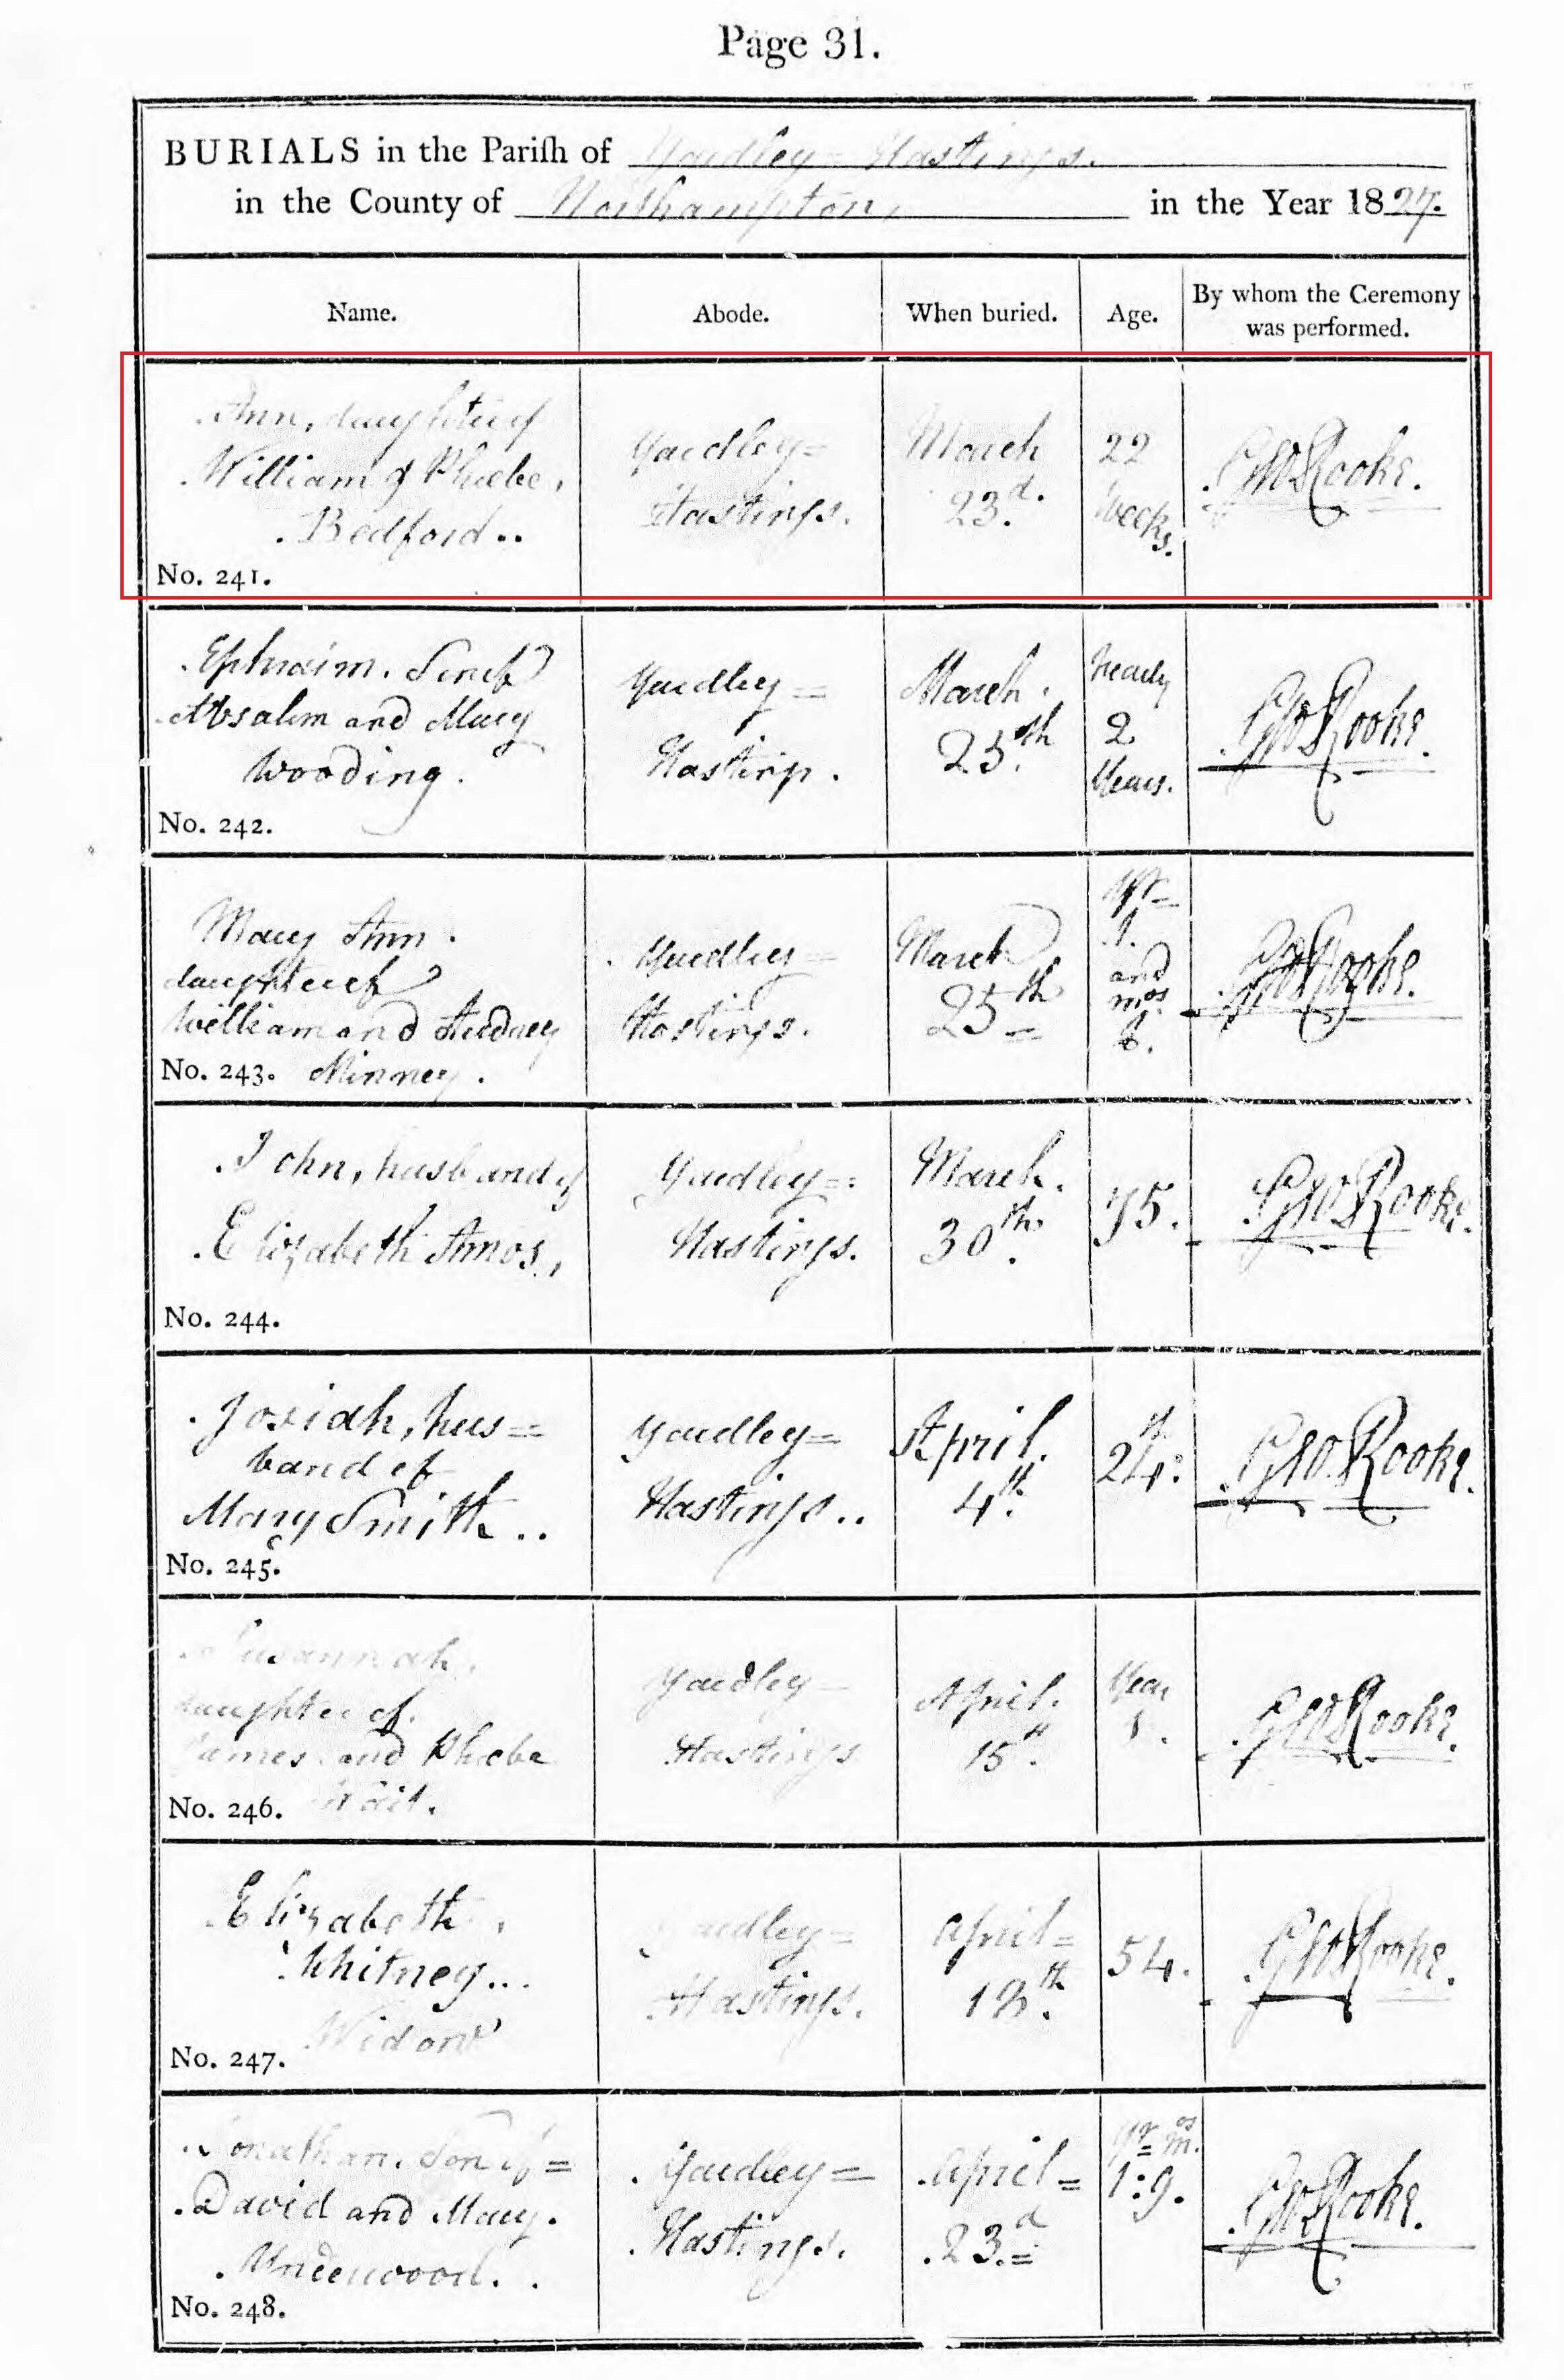 Page 31.
BURIALS in the Pariſh of Yardley=Hastings.
in the County of Northampton, in the Year 1827.
Name. Abode. When buried. Age. By whom the Ceremony
was performed.
Ann, daughter of
William & Phoebe,
Bedford..
No. 241.
Yardley=
Hastings.
March
23.d
22
Weeks.
Geo Rooke.
Ephraim. Son of
Absalom and Mary
Wooding.
No. 242.
Yardley=
Hastings.
March.
25th
Nearly
2
Years.
Geo Rooke.
Mary Ann.
daughter of
William and Audary
No. 243. Minney.
Yardley=
Hastings.
March
25th
Yr
1.
and
mos
6.
Geo Rooke.
John, husband of
Elizabeth Amos,
No. 244.
Yardley=
Hastings.
March.
30th.
75.
Geo Rooke.
Josiah, hus=
band of
Mary Smith..
No. 245.
Yardley=
Hastings..
April.
4th.
24.
Geo Rooke.
Susannah,
daughter of.
James and Phoebe
No. 246. Wait.
Yardley=
Hastings
April.
15th.
Year
1.
Geo Rooke.
Elizabeth,
Whitney...
Widow
No. 247.
Yardley=
Hastings.
April=
18th.
54.
Geo Rooke.
Jonathan. Son of=
David and Mary.
Underwood..
No. 248.
Yardley=
Hastings.
April=
23.d
Yr. mos.
1:9.
Geo Rooke.